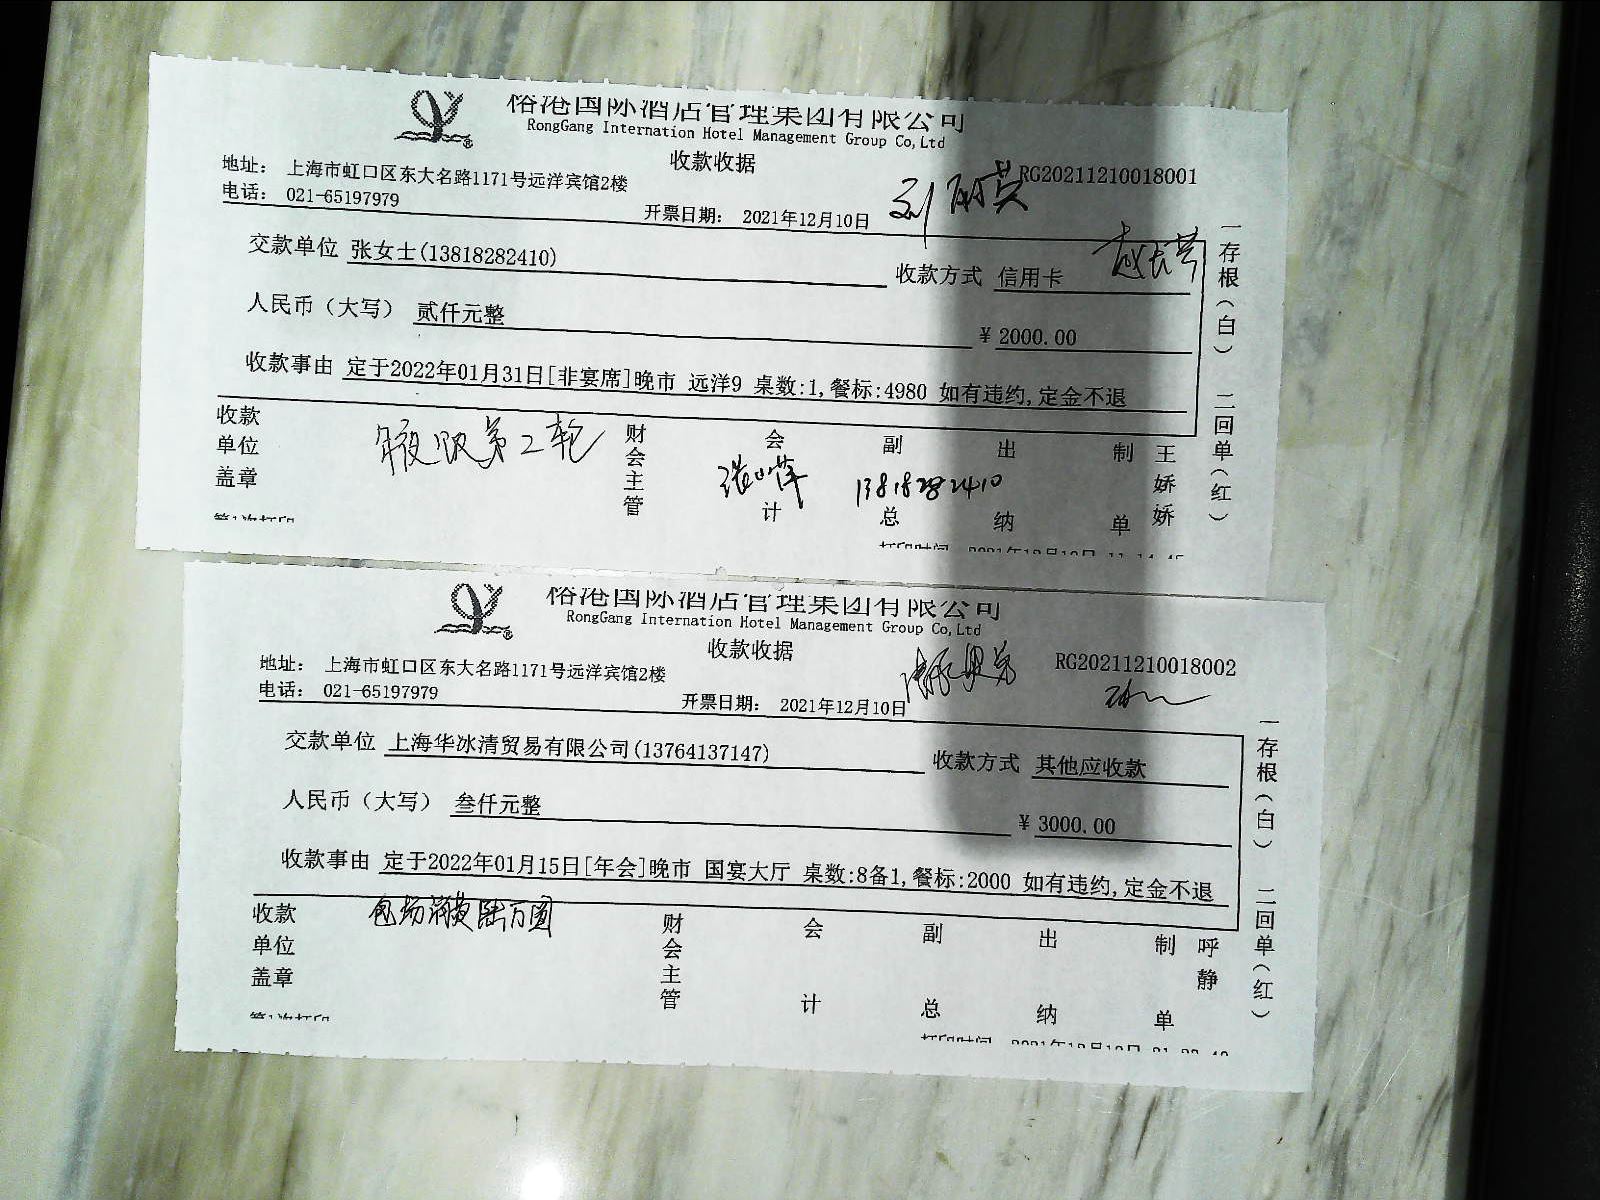 榕港国际酒店管理集团有限公司
RongGang Internation Hotel Management Group Co,Ltd
收款收据
地址： 上海市虹口区东大名路1171号远洋宾馆2楼
RG20211210018001
电话： 021-65197979
开票日期： 2021年12月10日
交款单位 张女士(13818282410)
收款方式 信用卡
人民币（大写） 贰仟元整
¥ 2000.00
收款事由 定于2022年01月31日[非宴席]晚市 远洋9 桌数:1,餐标:4980 如有违约,定金不退
一存根（白） 二回单（红）
收款单位盖章
第2轮
财会主管
会计
副总
13818282410
出纳
制单
王娇娇
第1次打印
打印时间 2021年12月10日
榕港国际酒店管理集团有限公司
RongGang Internation Hotel Management Group Co,Ltd
收款收据
地址： 上海市虹口区东大名路1171号远洋宾馆2楼
RG20211210018002
电话： 021-65197979
开票日期： 2021年12月10日
交款单位 上海华冰清贸易有限公司(13764137147)
收款方式 其他应收款
人民币（大写） 叁仟元整
¥ 3000.00
收款事由 定于2022年01月15日[年会]晚市 国宴大厅 桌数:8备1,餐标:2000 如有违约,定金不退
一存根（白） 二回单（红）
收款单位盖章
包场消费陆万圆
财会主管
会计
副总
出纳
制单
呼静
第1次打印
打印时间 2021年12月10日